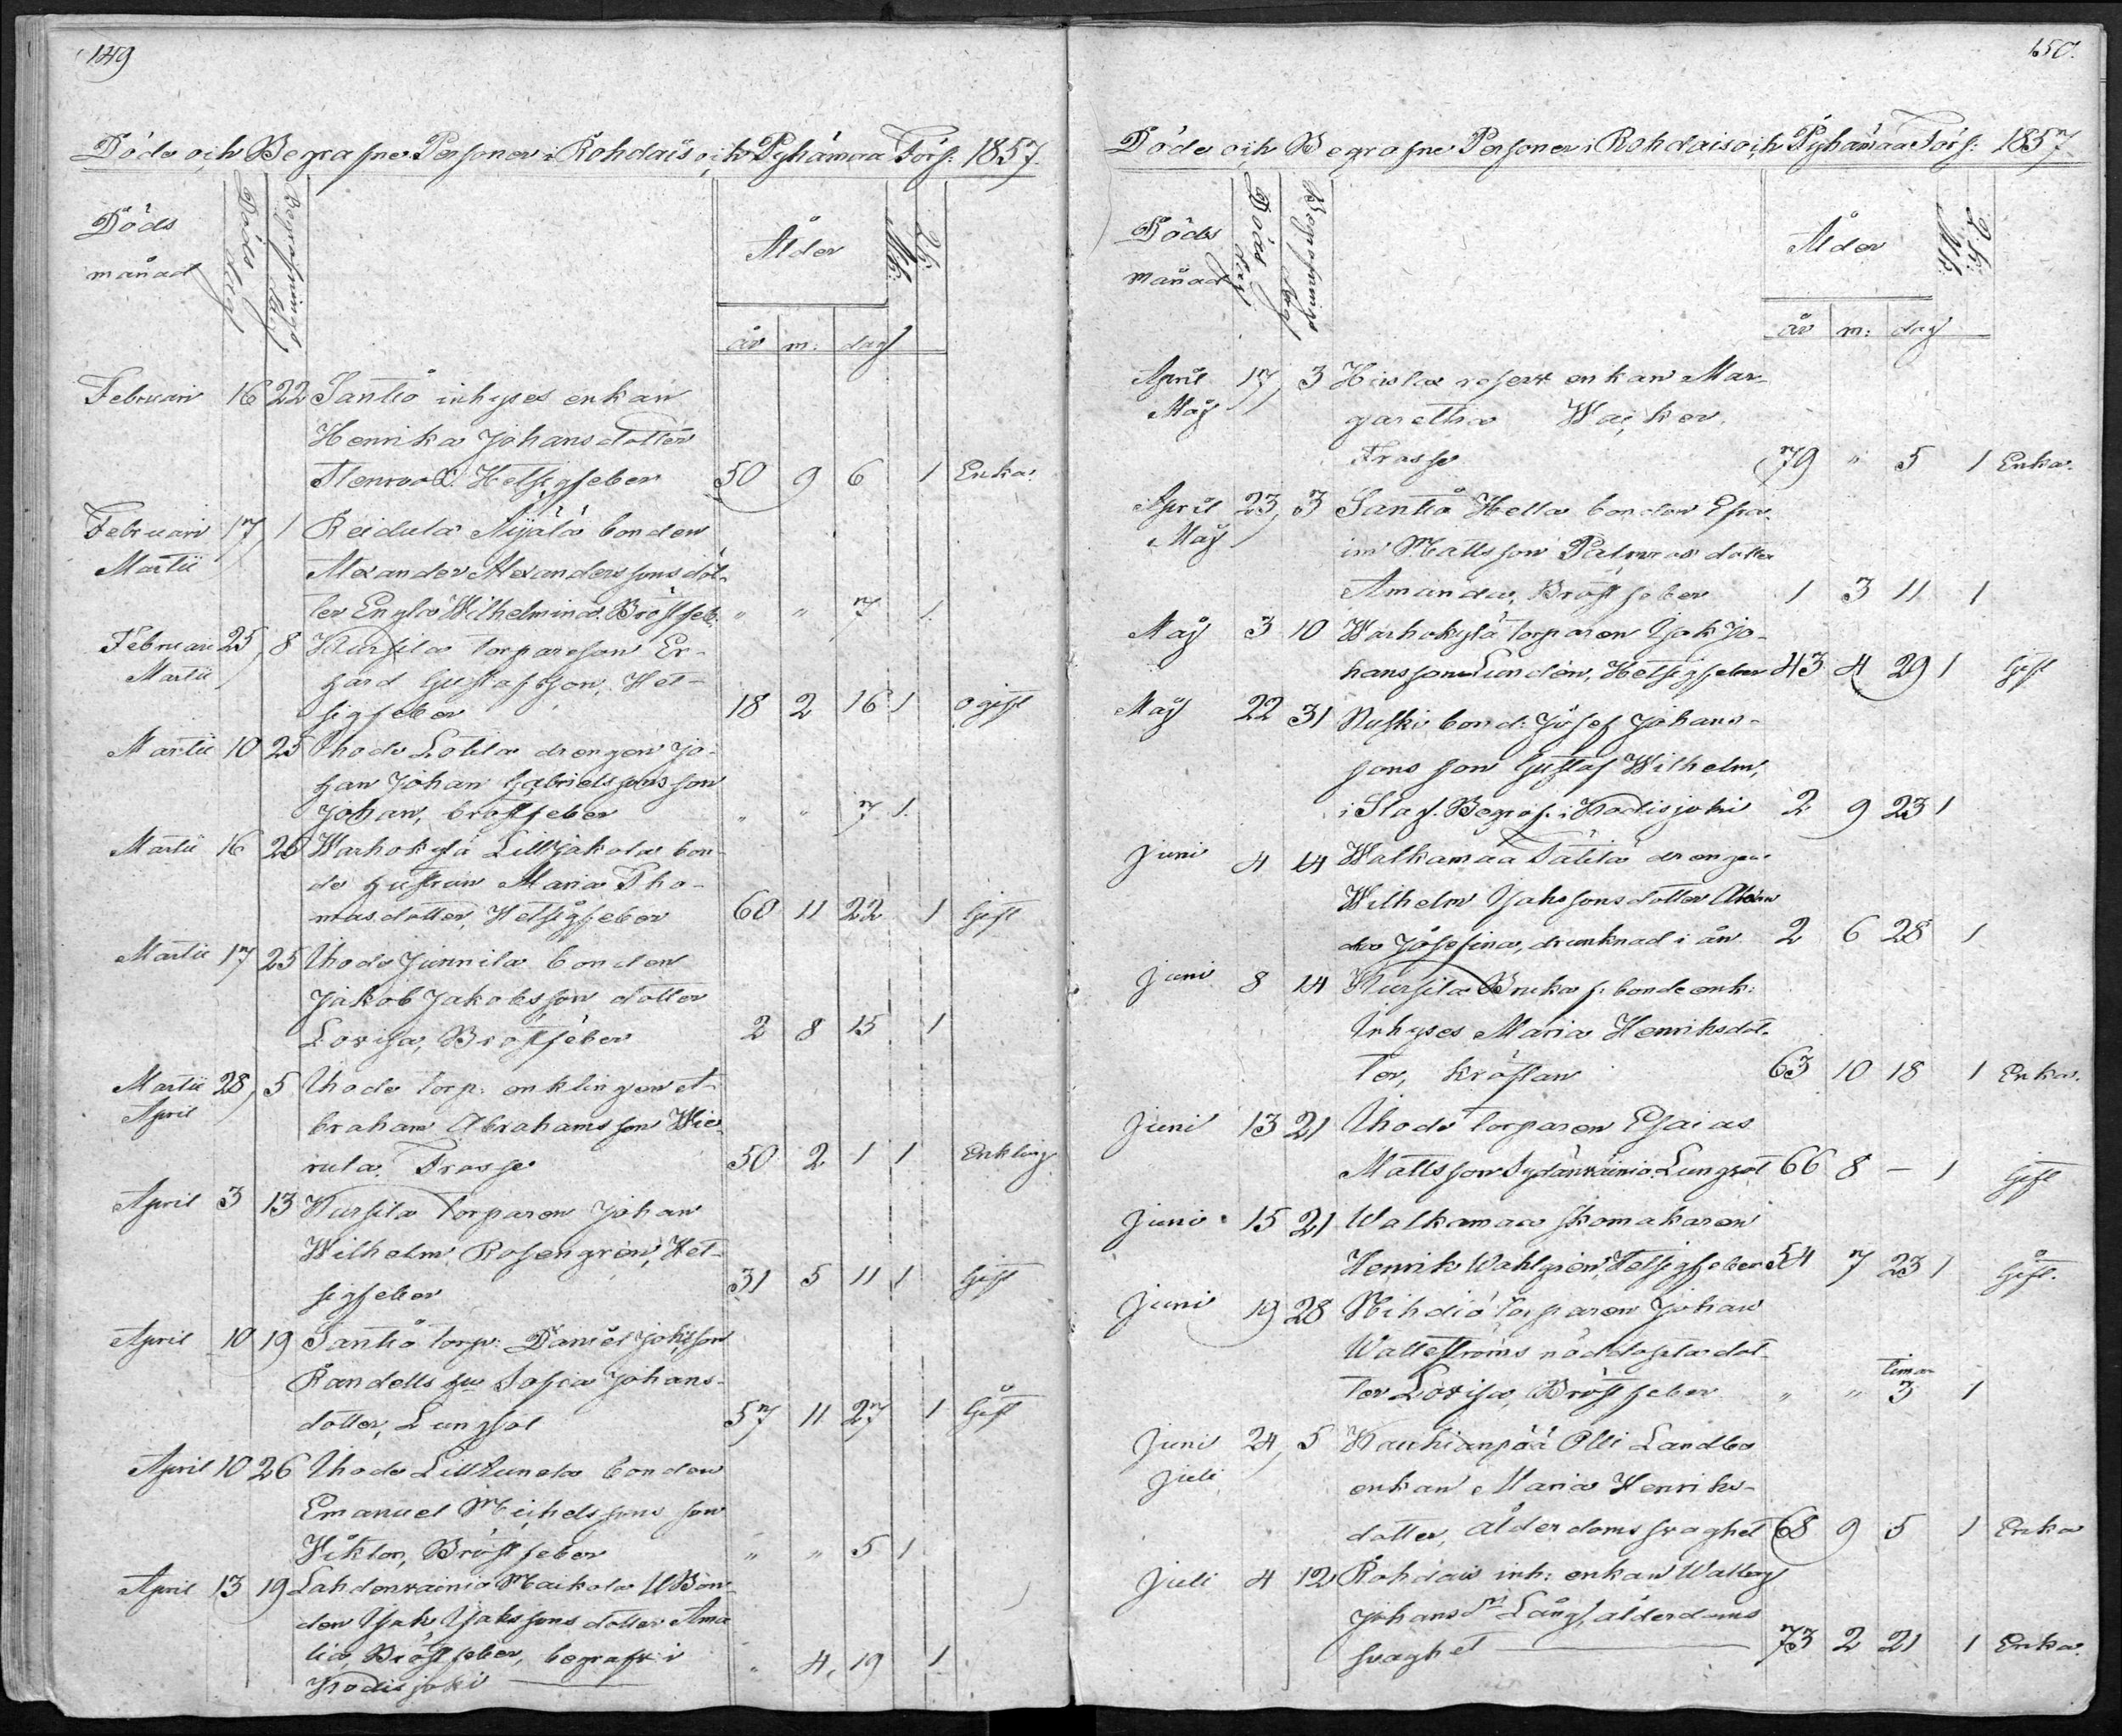 149
Döde och Begrafne Personer i Rohdais och Pyhämaa Förs: 1857.
Döds månad
Döds dag
Begrafnings dag
Ålder
Mk:
Qk:
år m: dag
Februari 16 22 Santio inhyses enkan
Henrika Johansdotter
Hetsigfeber 50 9 6 1 Enka.
Februari 17 1 Reidula Nijälä bonden
Martii Alexander Alexanderssons dot-
ter Engla Wilhelmina. Bröstfeb. " " 7 1.
Februari 25 8 Kursila torpareson Er-
Martii hard Gustafsson, Het-
sigfeber 18 2 16 1 ogift
Martii 10 25 Ihode Lotila drengen Jo-
han Johan Gabrielssons son
Johan, bröstfeber " " 7 1.
Martii 16 20 Warhokylä Lilljakola bon-
de hustrun Maria Tho-
masdotter, Hetsigfeber 60 11 22 1 Gift
Martii 17 25 Ihode Junnila bonden
Jakob Jakobsson dotter
Lovisa, Bröstfeber 2 8 15 1
Martii 28 5 Ihode torp: enklingen A-
April braham Abrahamsson Wie-
rula. Frossa 50 2 1 1 Enkling
April 3 13 Kursila torparen Johan
Wilhelm Rosengren, Het-
sigfeber 31 5 11 1 Gift
April 10 19 Santio torp: Daniel Johsson
Randells hu Sofia Johans-
dotter, Lungsot 57 11 27 1 Gift
April 10 26 Ihode Lilltunela bonden
Emanuel Michelssons son
Wiktor, Bröstfeber " " 5 1
April 13 19 Lahdenvainio Maikola Bon-
den Isak Isakssons dotter Ama
lia, Bröstfeber, begrafn i " 4. 19 1
Kodisjoki
150.
Döde och Begrafne Personer i Rohdais och Pyhämaa Förs: 1857
Döds månad
Döds dag
Begrafnings dag
Ålder
Mk:
Qk:
år m: dag
April 17 3 enkan Mar-
Maj garetha Wacker.
Frossa 79 " 5 1 Enka.
April 23 3 Santio Hella bonden Efra-
Maj im Mattsson Palmros dotter
Amanda, Bröstfeber 1 3 11 1
Maj 3 10 Warhokylä torparen Isak Jo-
hansson Lunden, Hetsigfeber 43 4 29 1 Gift
Maj 22 31 Ruski bond: Josef Johans-
sons son Gustaf Wilhelm,
i Slag. Begraf. i Kodisjoki 2 9 23 1
Juni 4 14 Walkamaa Tätilä drengen
Wilhelm Isakssons dotter
Josefina, drunknad i ån 2 6 28 1
Juni 8 14 Kursila Bruka f: bondeenk:
Inhyses Maria Henriksdot-
ter, kräftan 63 10 18 1 Enka.
Juni 13 21 Ihode torparen Esaias
Mattsson Sydänvainio. Lungsot 66 8 — 1 Gift
Juni 15 21 Walkamaa skomakaren
Henrik Wahlgren, Hetsigfeber 54 7 23 1 Gift.
Juni 19 28 Rihdiö torparen Johan
Wallströms nöddöpta dot-
timar
ter Lovisa, Bröstfeber " " 3 1
Juni 24 5 Kauhianpää Olli Landbo
Juli enkan Maria Henriks-
dotter, ålderdomssvaghet 68 9 5 1 Enka
Juli 4 12 Rohdais inh: enkan Walborg
Johansdr Lång, ålderdoms
svaghet 73 2 21 1 Enka.